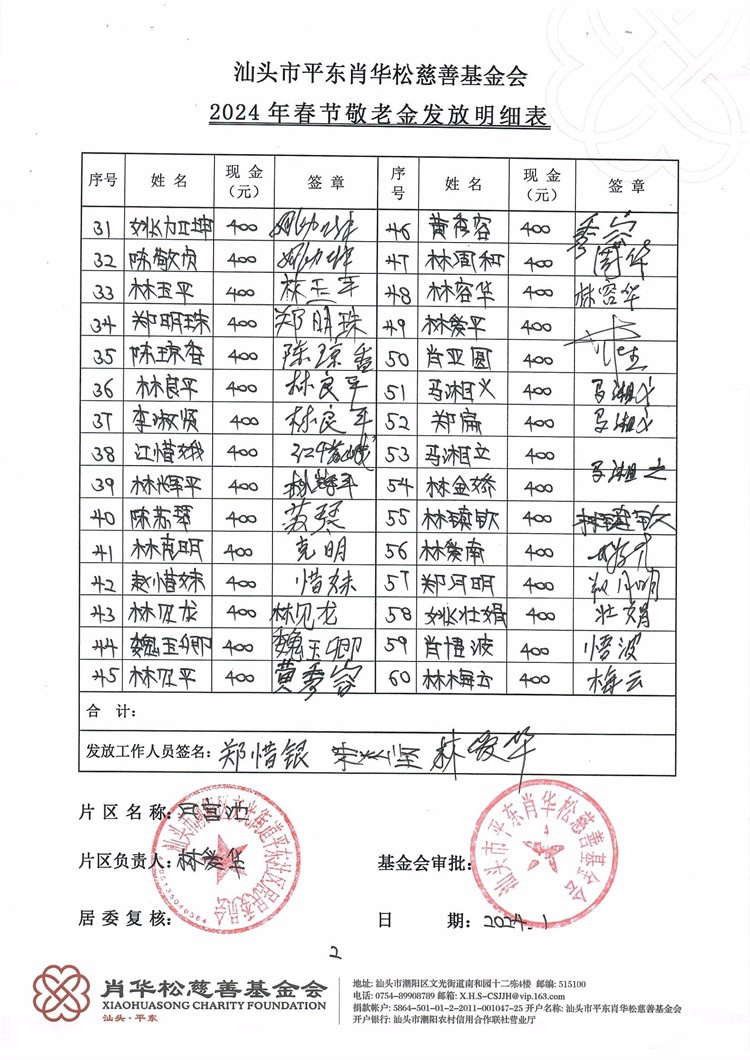 汕头市平东肖华松慈善基金会
2024年春节敬老金发放明细表
序号 姓名 现金（元） 签章 序号 姓名 现金（元） 签章
31 400 46 黄秀容 400
32 陈敬贞 400 47 林周和 400
33 林玉平 400 林玉平 48 林容华 400 林容华
34 郑明珠 400 郑明珠 49 林爱平 400
35 陈琼香 400 陈琼香 50 肖亚圆 400
36 林良平 400 林良平 51 马湘义 400 马湘义
37 李淑贤 400 林良平 52 郑扁 400 马湘义
38 江惜娥 400 江惜娥 53 马湘立 400 马湘立
39 林辉平 400 林辉平 54 林金娇 400
40 陈苏琴 400 苏琴 55 400
41 林克明 400 克明 56 林爱南 400
42 赵惜妹 400 惜妹 57 郑河明 400
43 林见龙 400 林见龙 58 姚壮娟 400 壮娟
44 魏玉卿 400 魏玉卿 59 肖惜波 400 惜波
45 林见平 400 黄秀容 60 林梅云 400 梅云
合 计：
发放工作人员签名：郑惜银 林爱华
片区名称：
片区负责人：林爱华 基金会审批：
居委复核： 日 期：2024.1
汕头市平东肖华松慈善基金会
2
肖华松慈善基金会
XIAOHUASONG CHARITY FOUNDATION
汕头·平东
地址: 汕头市潮阳区文光街道南和园十二栋4楼 邮编: 515100
电话: 0754-89908789 邮箱: X.H.S-CSJJH@vip.163.com
捐款帐户: 5864-501-01-2-2011-001047-25 开户名称: 汕头市平东肖华松慈善基金会
开户银行: 汕头市潮阳农村信用合作联社营业厅